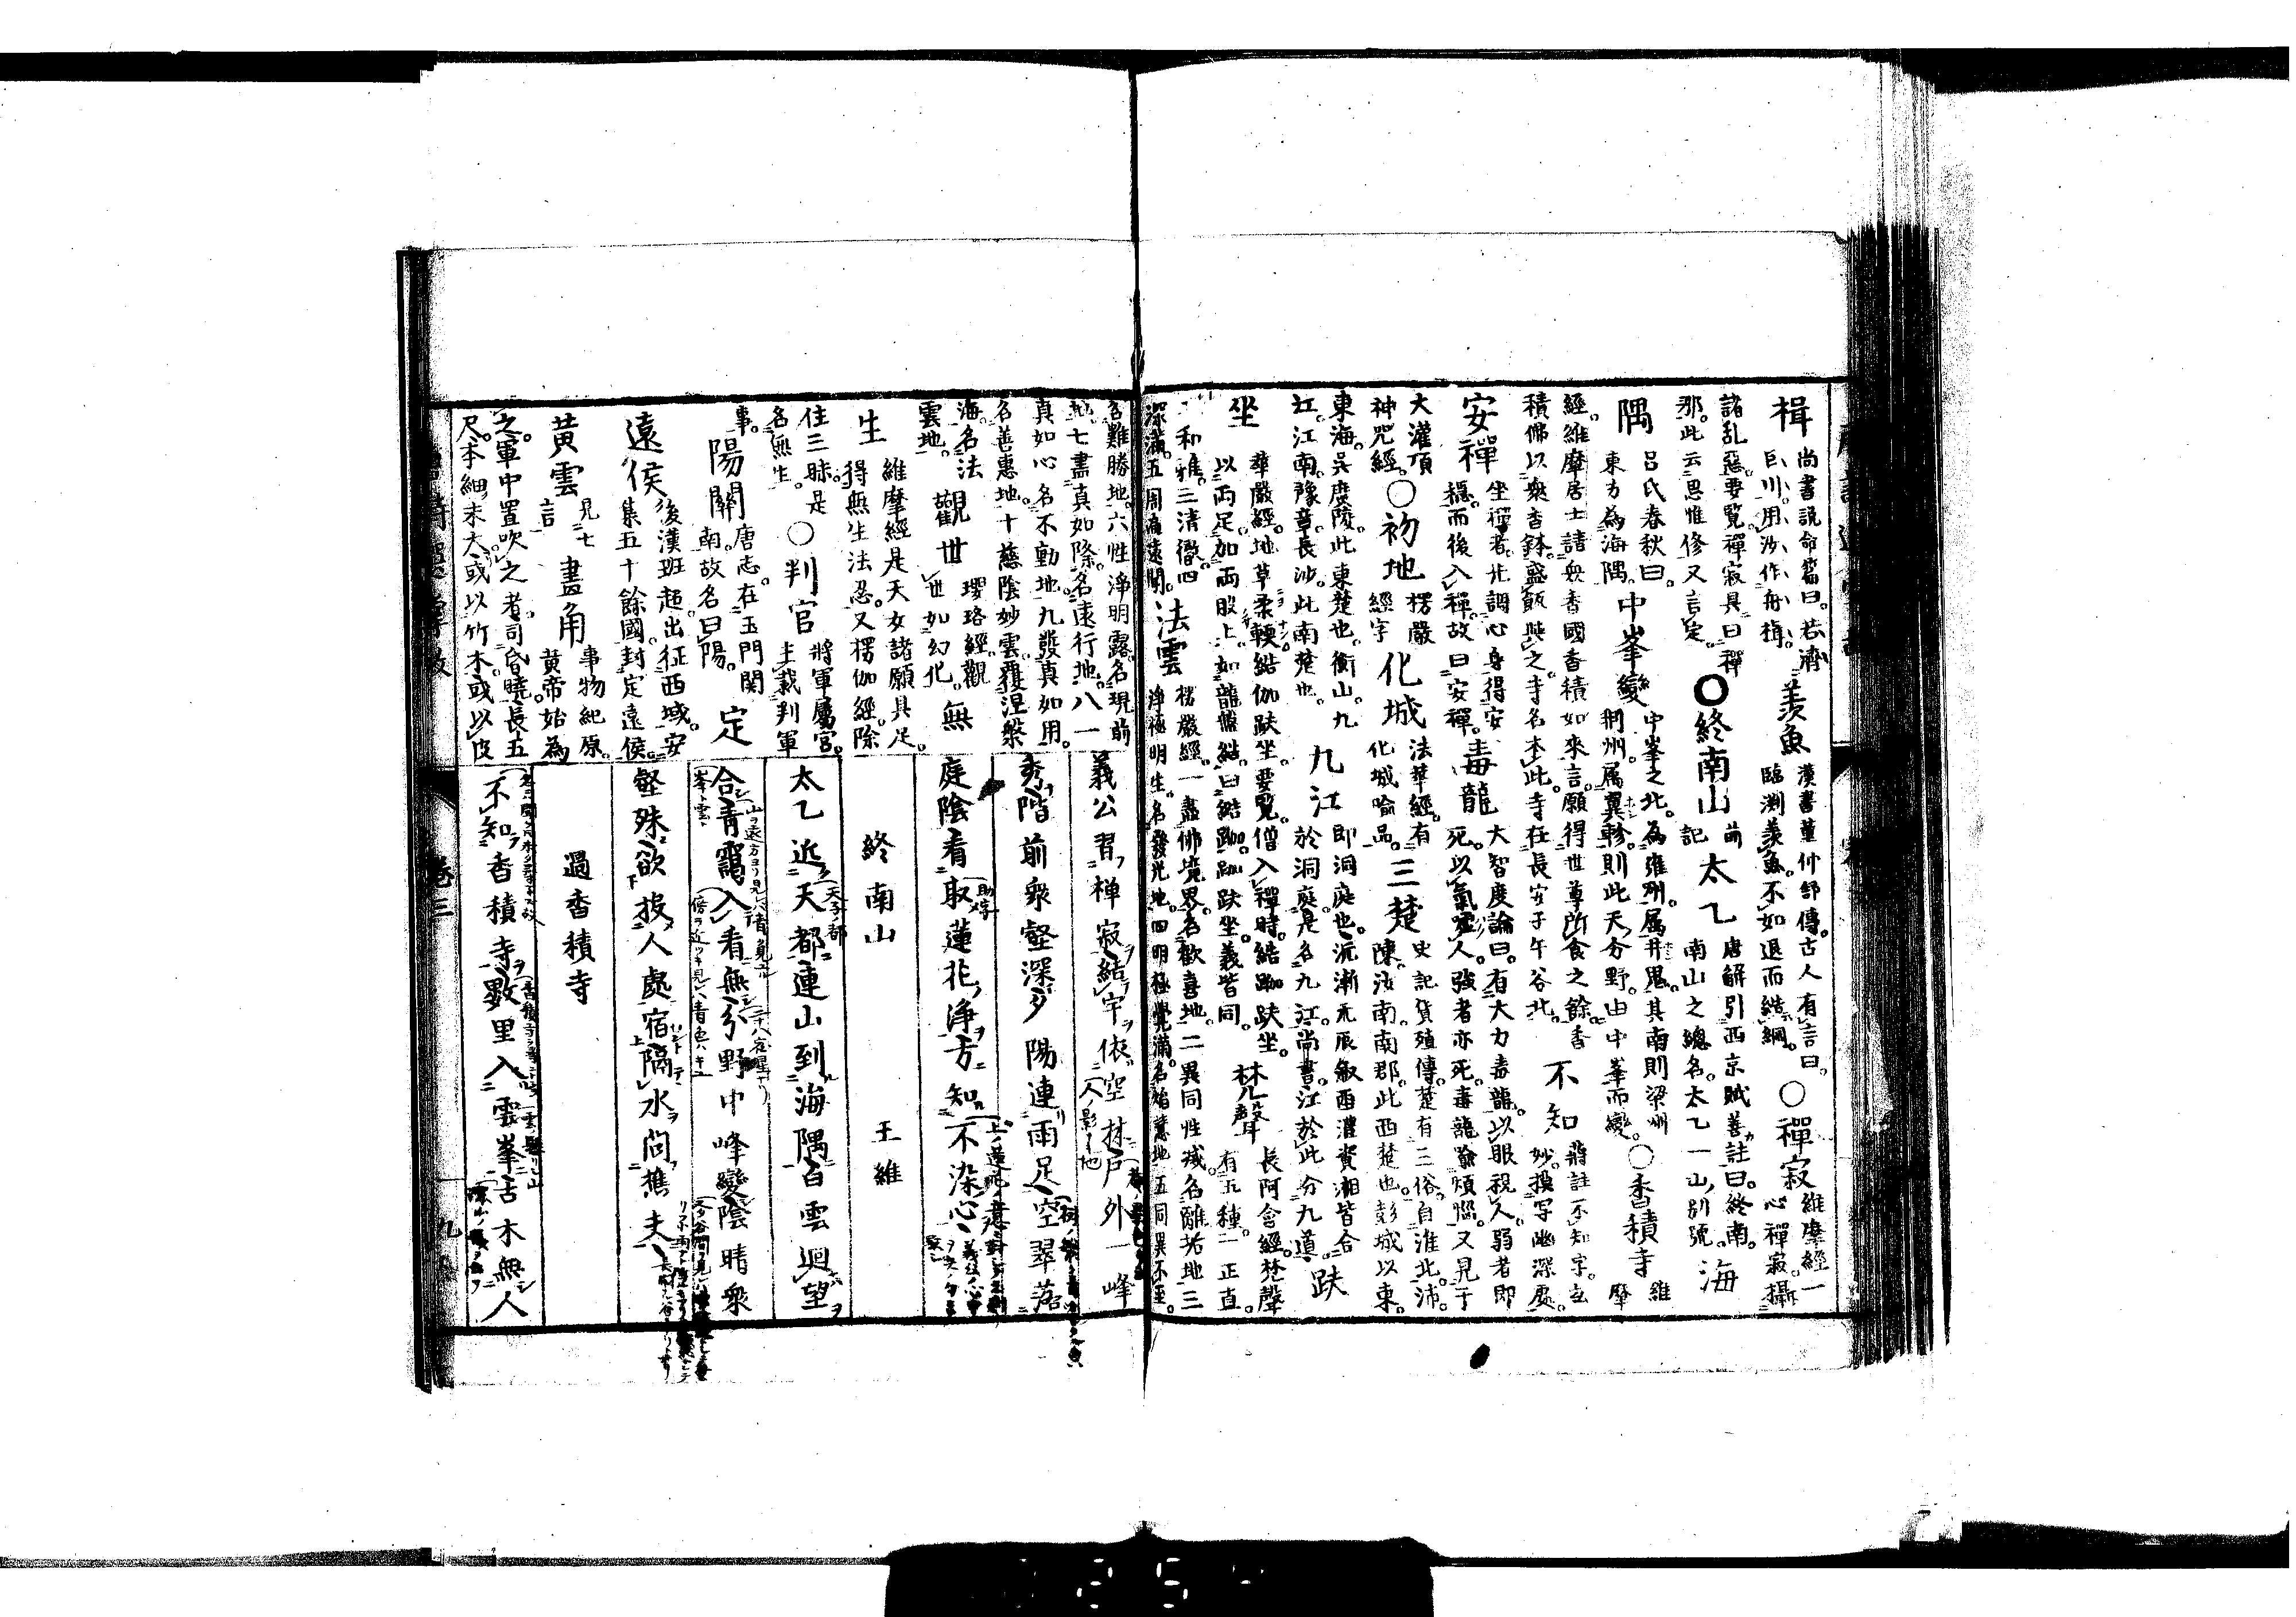 楫 尚書説命篇曰。若濟
巨川。用汝作舟楫。
羨魚 漢書董仲舒傳。古人有言曰。
臨淵羨魚。不如退而結網。
○禪寂 維摩經一
心禪寂。攝
諸乱惡。要覧。禪寂具曰禪
那。此云思惟修。又言定。
○終南山 前
記
太乙 唐解引西京賦善註曰。終南。
南山之總名。太乙一山別號。
海
隅 呂氏春秋曰。
東方為海隅。
中峯變 中峯之北。為雍州。属井鬼。其南則梁州
荆州。属翼軫。則此天分野。由中峯而變。
○香積寺 維
摩
經。維摩居士諸衆香國香積如來言。願得世尊所食之餘。香
積佛以衆香鉢。盛飯與之。寺名本此。寺在長安子午谷北。
不知 蔣註不知字。玄
妙。摸写幽深處。
安禪 坐禪者。先調心身得安
穏。而後入禪。故曰安禪。
毒龍 大智度論曰。有大力毒龍。以眼視人。弱者即
死。以氣噓人。強者亦死。毒龍喩煩惱。又見于
大灌頂
神咒經。
○初地 楞嚴
經字
化城 法華經。有
化城喩品。
三楚 史記貨殖傳。楚有三俗。自淮北沛。
陳汝南南郡。此西楚也。彭城以東。
東海。呉廣陵。此東楚也。衡山。九
江。江南。豫章。長沙。此南楚也。
九江 即洞庭也。沅漸无辰叙酉澧資湘皆合
於洞庭。是名九江。尚書。江於此分九道。
趺
坐 華嚴經。地草柔輭。結伽趺坐。要覧。僧入禪時。結跏趺坐。
以両足。加両股上。如龍盤結。曰結跏。跏趺坐。義皆同。
梵聲 長阿含經。梵聲
有五種。一正直。
二和雅。三清徹。四
深満。五周遍遠聞。
法雲 楞嚴經。一盡佛境界。名歡喜地。二異同性滅。名離垢地。三
淨極明生。名發光地。四明極覺滿。名焰慧地。五同異不至。
名難勝地。六性淨明露。名現前
地。七盡真如際。名遠行地。八一
真如心。名不動地。九發真如用。
名善惠地。十慈陰妙雲。覆涅槃
海。名法
雲地。
觀世 瓔珞經。觀
世如幻化。
無
生 維摩經是天女諸願具足。
得無生法忍。又楞伽經。除
住三昧。是
名無生。
○判官 將軍屬官。
主裁判軍
事。
陽關 唐志。在玉門関
南。故名曰陽。
定
遠侯 後漢班超。出征西域。安
集五十餘國。封定遠侯。
黄雲 見七
言
畫角 事物紀原。
黄帝始為
之。軍中置吹之者。司昏曉。長五
尺。本細。末大。或以竹木。或以皮
義公習禪寂結宇依空林戸外一峰
秀階前衆壑深夕陽連雨足空翠落
庭陰看取蓮花淨方知不染心
終南山 王維
太乙近天都連山到海隅白雲迴望
合青靄入看無分野中峰變陰晴衆
壑殊欲投人處宿隔水問樵夫
過香積寺
不知香積寺數里入雲峯古木無人
巻三
九